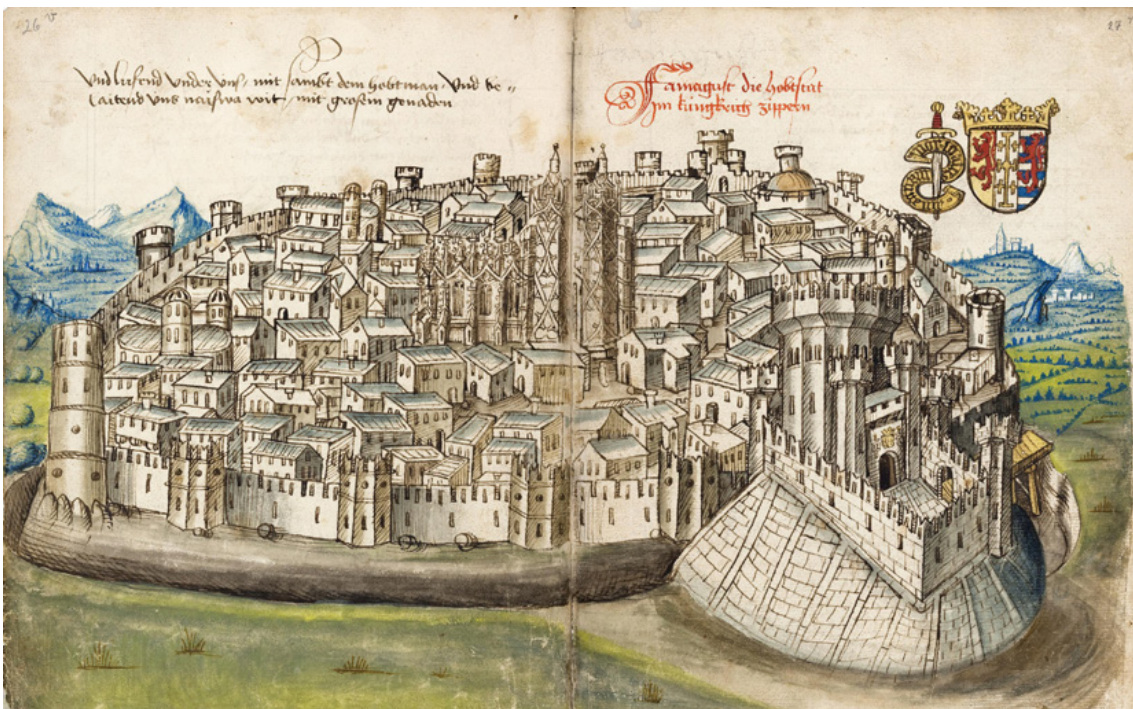 26 v
27
Vnd liesend Vnder Vns, mit sambt dem hobtman, Vnd be„
laitend Vns naiswa wit, mit grosem genaden
Famagust die hobtstat
Im küngkrich zippern